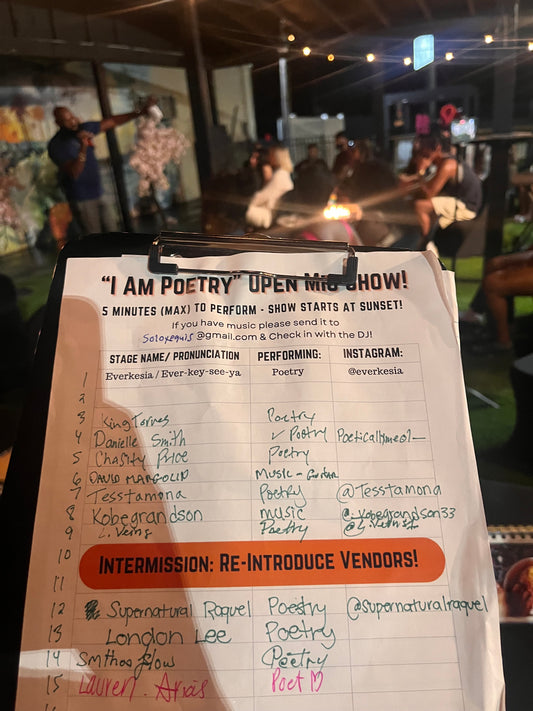 "I AM POETRY" OPEN MIC SHOW!
5 MINUTES (MAX) TO PERFORM - SHOW STARTS AT SUNSET!
If you have music please send it to
@gmail.com & Check in with the DJ!
STAGE NAME/ PRONUNCIATION PERFORMING: INSTAGRAM:
1 Everkesia / Ever-key-see-ya Poetry @everkesia
2
3 King Torres Poetry
4 Danielle Smith ✓ Poetry
5 Chasity Price Poetry
6 DAVID MANGOLD Music - Guitar
7 Tesstamona Poetry @Tesstamona
8 Kobegrandson music @.kobegrandson33
9 L. Veins Poetry
10 INTERMISSION: RE-INTRODUCE VENDORS!
11
12 Supernatural Raquel Poetry @supernaturalraquel
13 London Lee Poetry
14 Poetry
15 Lauren. Arias Poet ♡